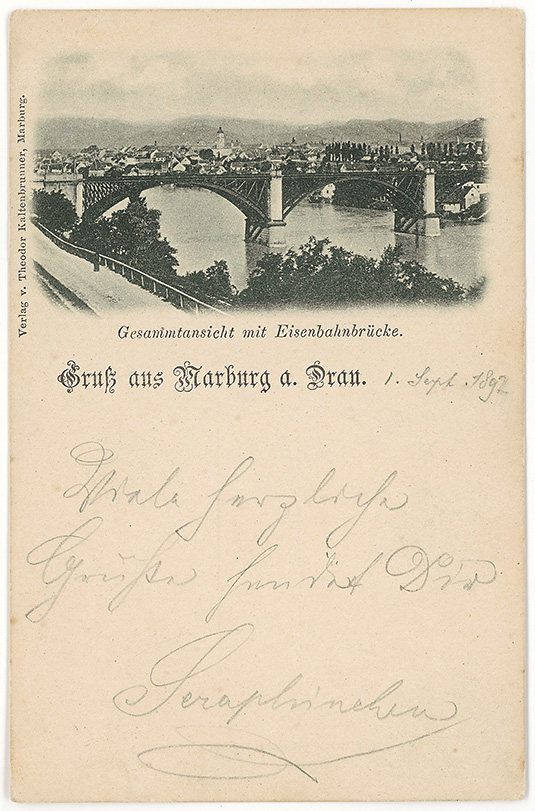 Verlag v. Theodor Kaltenbrunner, Marburg.
Gesammtansicht mit Eisenbahnbrücke.
Gruß aus Marburg a. Drau. 1. Sept. 1897
Viele herzliche
Grüße sendet Dir
Seraphinchen